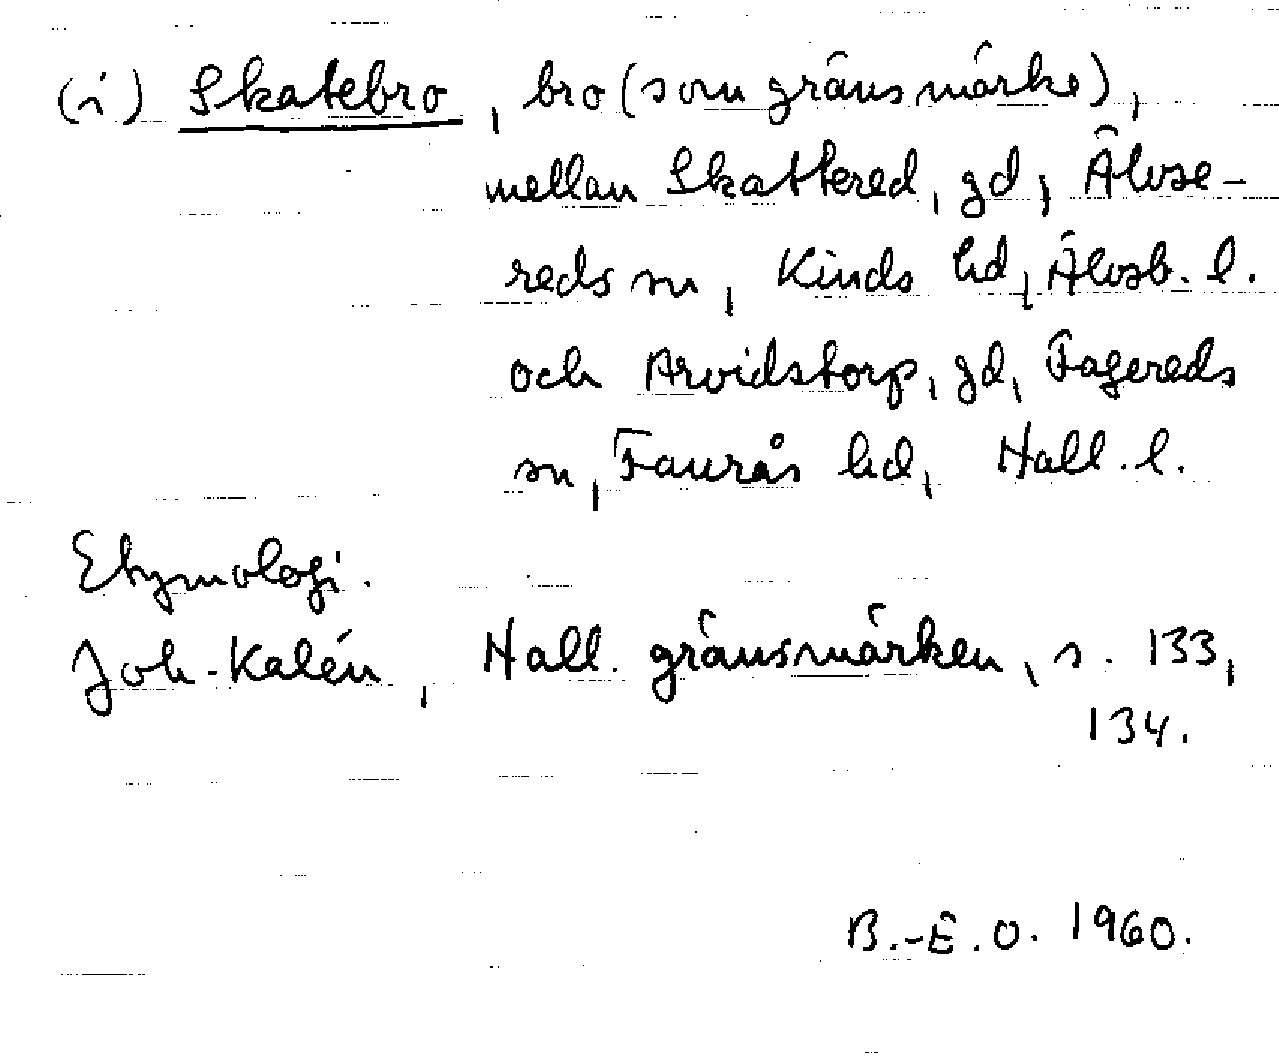 (i) Skatebro, bro (som gränsmärke),
mellan Skattered, gd, Älvse-
reds sn, Kinds hd, Älvsb. l.
och Arvidstorp, gd, Fagereds
sn, Faurås hd, Hall. l.
Etymologi.
Joh. Kalén, Hall. gränsmärken, s. 133,
134.
B.-E.O. 1960.